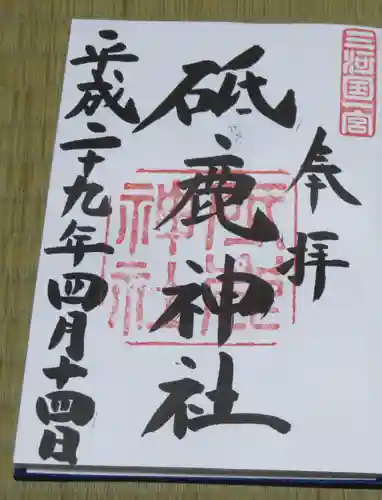 三河国一宮
奉拝
砥鹿神社
砥鹿神社
平成二十九年四月十四日